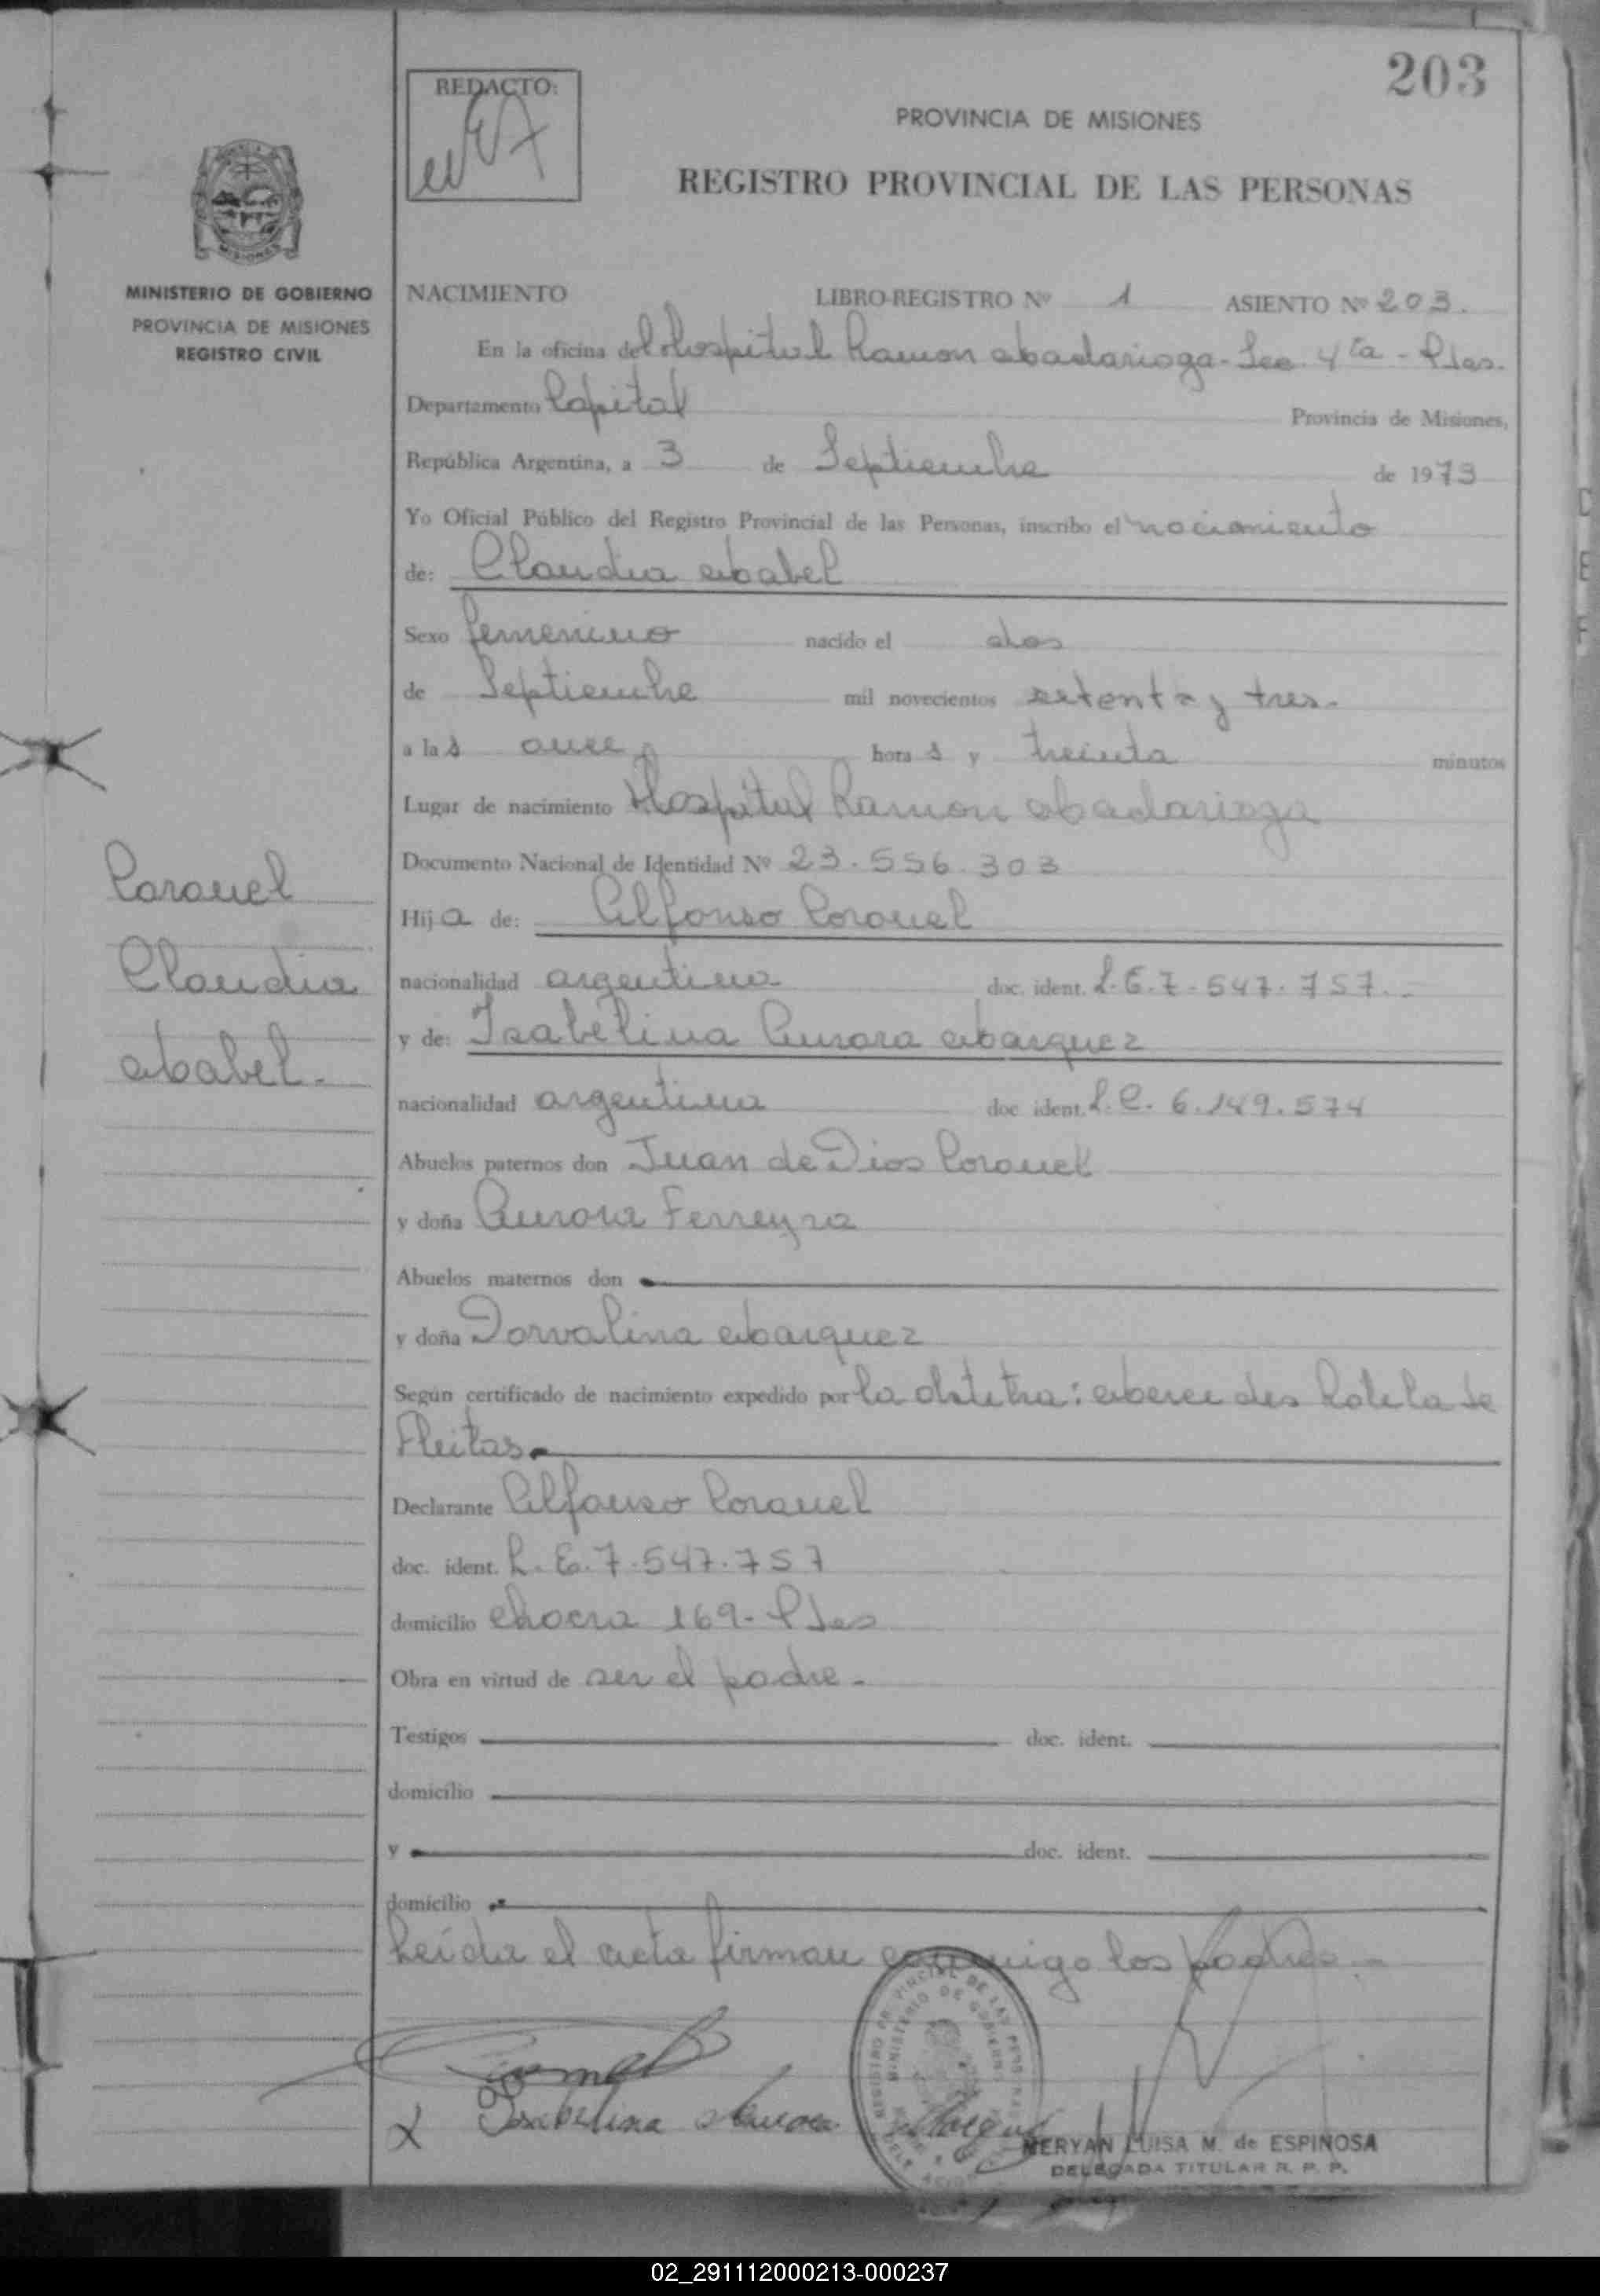 203
REDACTO:
PROVINCIA DE MISIONES
REGISTRO PROVINCIAL DE LAS PERSONAS
MISIONES
MINISTERIO DE GOBIERNO
PROVINCIA DE MISIONES
REGISTRO CIVIL
NACIMIENTO LIBRO-REGISTRO Nº 1 ASIENTO Nº 203.
En la oficina del Hospital Ramon Madariaga - Sec. 4ta - Pdas.
Departamento Capital Provincia de Misiones,
República Argentina, a 3 de Septiembre de 1973
Yo Oficial Público del Registro Provincial de las Personas, inscribo el nacimiento
de: Claudia Mabel
Sexo femenino nacido el dos
de Septiembre mil novecientos setenta y tres.
a las once hora s y treinta minutos
Lugar de nacimiento Hospital Ramon Madariaga
Documento Nacional de Identidad Nº 23.556.303
Hija de: Alfonso Coronel
nacionalidad argentina doc. ident. L.E. 7.547.757.-
y de: Isabelina Aurora Marquez
nacionalidad argentina doc ident. L.C. 6.149.574
Abuelos paternos don Juan de Dios Coronel
y doña Aurora Ferreyra
Abuelos maternos don
y doña Dorvalina Marquez
Según certificado de nacimiento expedido por la obstetra: Mercedes Rolela de
Fleitas
Declarante Alfonso Coronel
doc. ident. L.E. 7.547.757
domicilio Chacra 169 - Pdas
Obra en virtud de ser el padre.
Testigos doc. ident.
domicilio
y doc. ident.
domicilio
Leída el acta firman conmigo los padres.-
Coronel
Claudia
Mabel.-
X Isabelina Aurora Marquez
REGISTRO PROVINCIAL DE LAS PERSONAS
MINISTERIO DE GOBIERNO
MERYAN LUISA M. de ESPINOSA
DELEGADA TITULAR R. P. P.
02_291112000213-000237